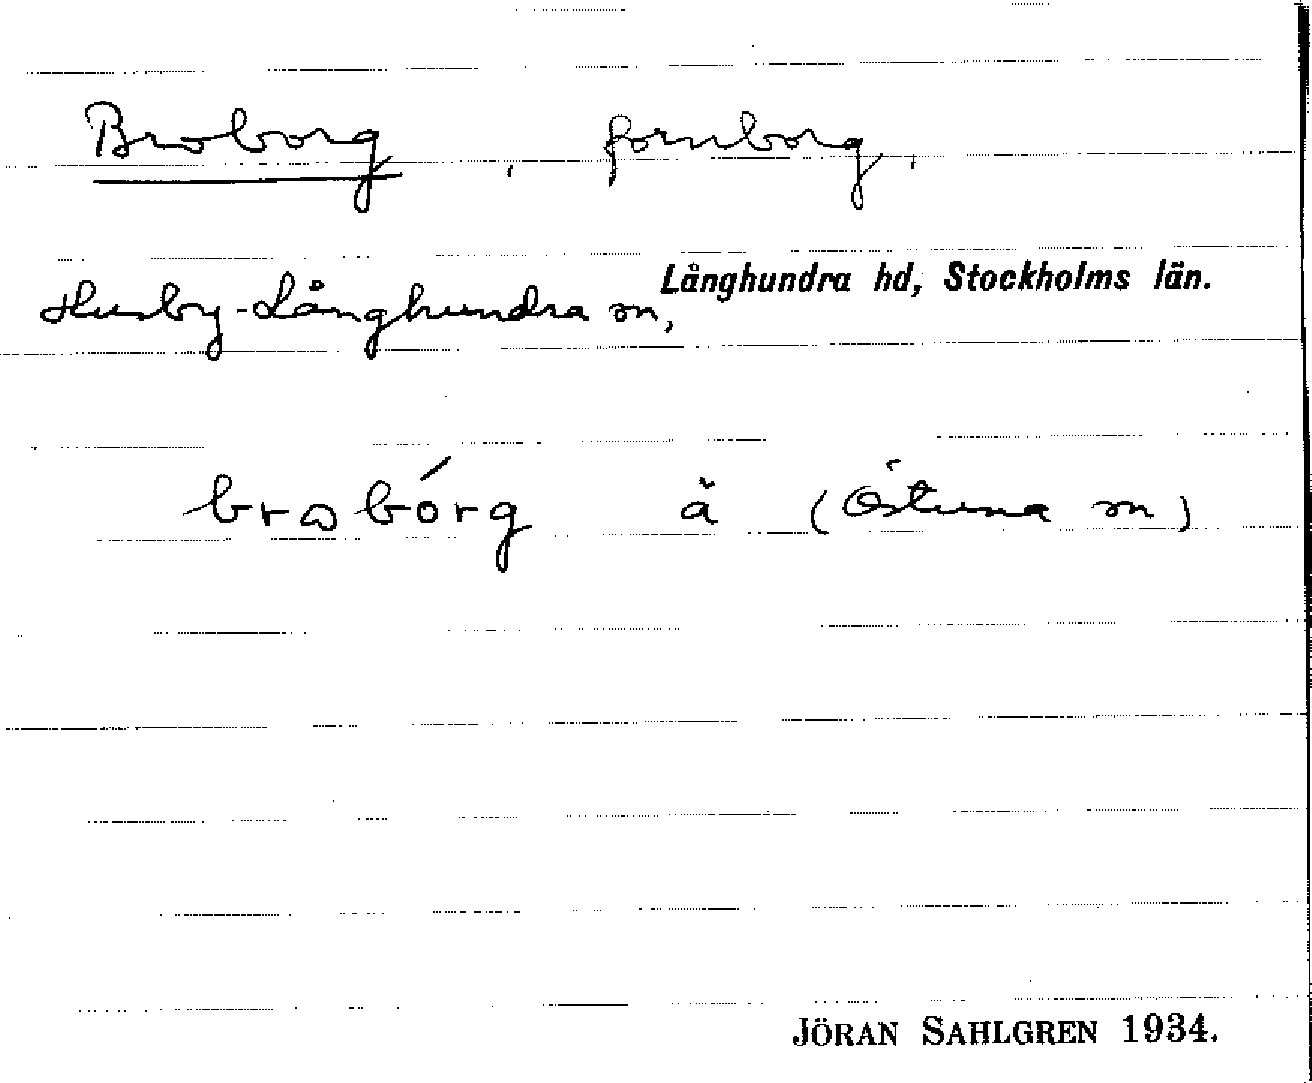 Broborg, fornborg,
Husby-Långhundra sn, Långhundra hd, Stockholms län.
brobórg ä (Östuna sn)
JÖRAN SAHLGREN 1934.